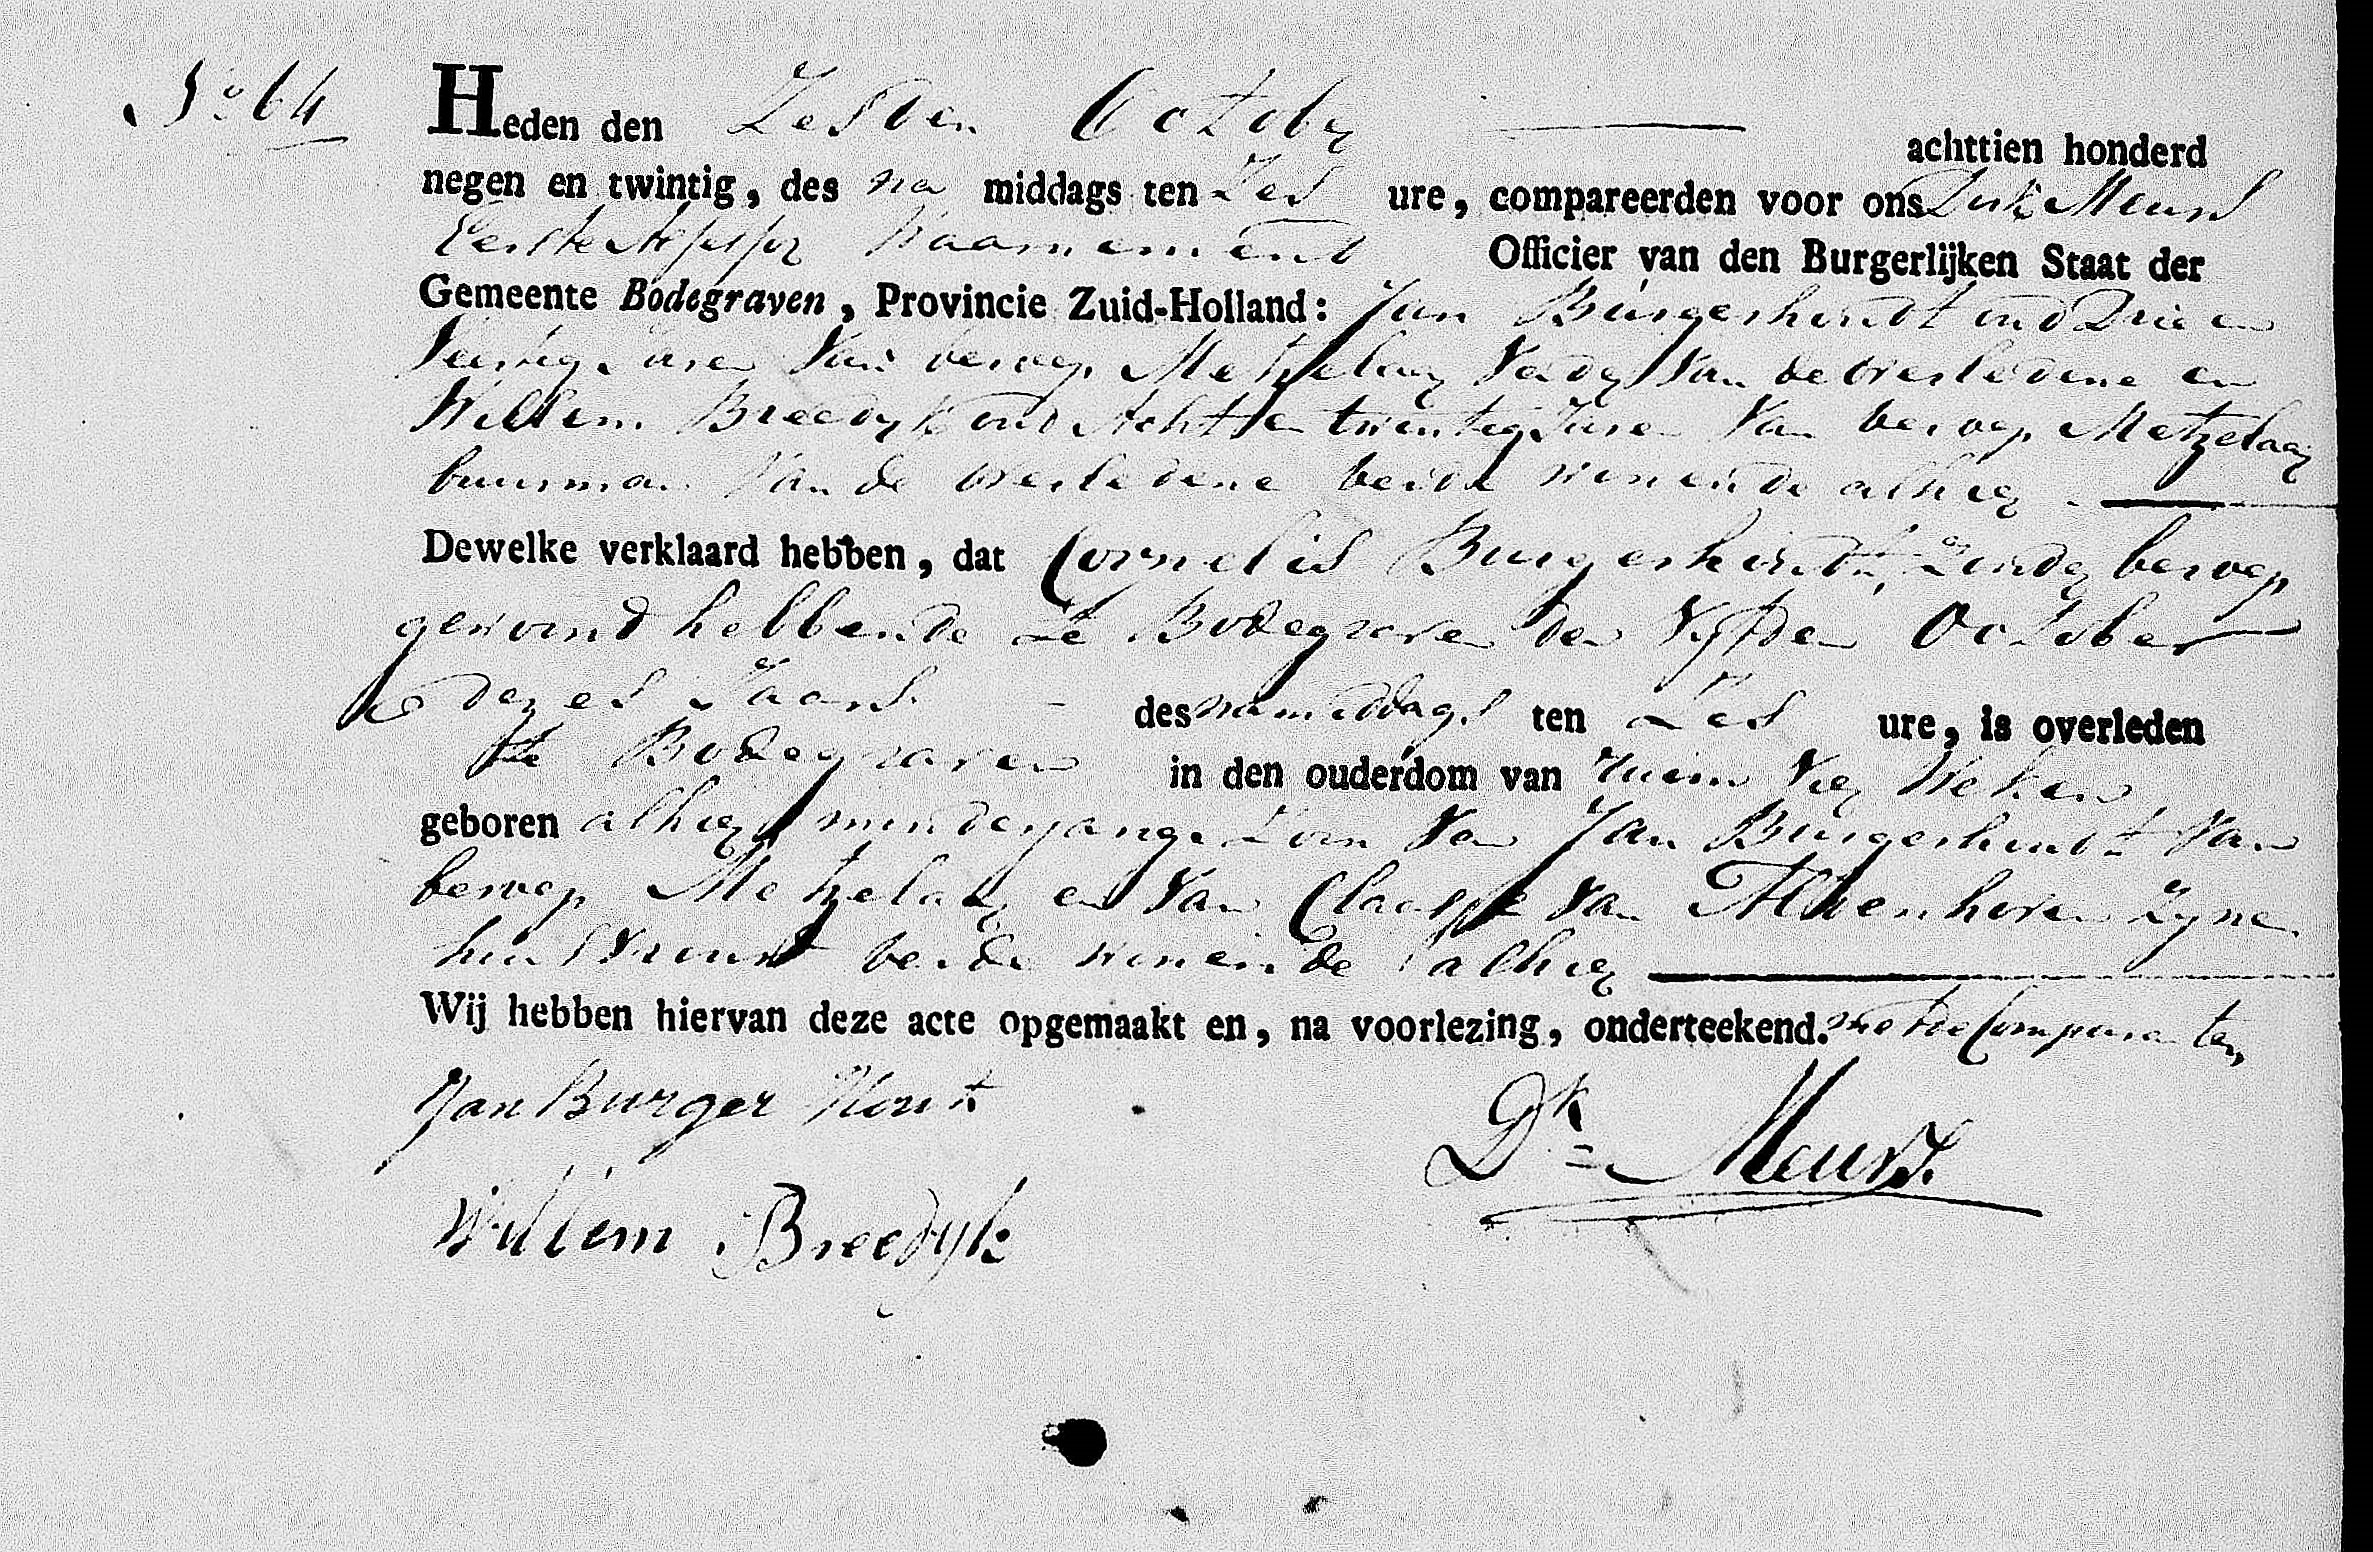 No 64
Heden den Zesden October achttien honderd
negen en twintig, des na middags ten Zes ure, compareerden voor ons Dirk Meurs
Eerste Assessor Waarnemend Officier van den Burgerlijken Staat der
Gemeente Bodegraven, Provincie Zuid-Holland: Jan Burgerhoudt oud Drie en
Veertig Jaren Van beroep Metzelaar Vader Van de overledene en
Willem Breedyk oud Acht en twintig Jaren Van beroep Metzelaar
buurman Van de overledene beide wonende alhier
Dewelke verklaard hebben, dat Cornelis Burgerhoudt, Zonder beroep
gewoond hebbende te Bodegraven den Vyfden October
dezes Jaars des namiddags ten Zes ure, is overleden
te Bodegraven in den ouderdom van ruim Vier Weken
geboren alhier minderjarige Zoon Van Jan Burgerhoudt Van
beroep Metzelaar en Van Claasje Van Alvenhoven Zyne
huisvrouw beide wonende alhier
Wij hebben hiervan deze acte opgemaakt en, na voorlezing, onderteekend. met de Comparanten
Jan Burger Hout
Dk Meurs
Willem Breedyk